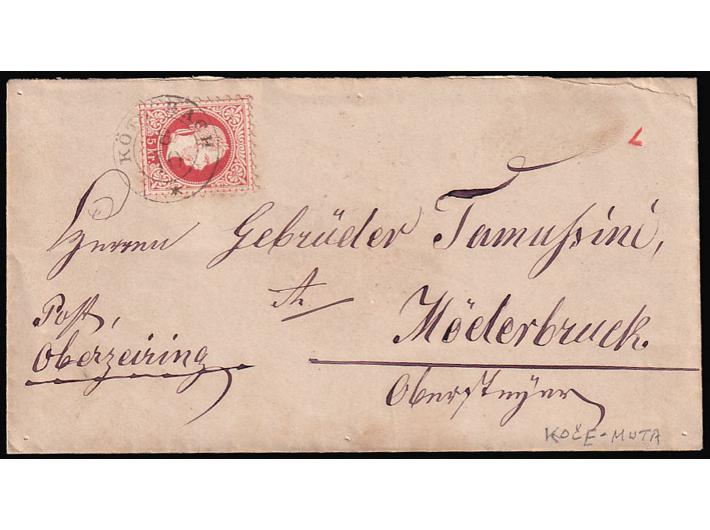 5 kr.
Herren Gebrüder Tamussini,
Möderbruck.
Post,
Oberzeiring
Obersteyer
KOČE-MUTA